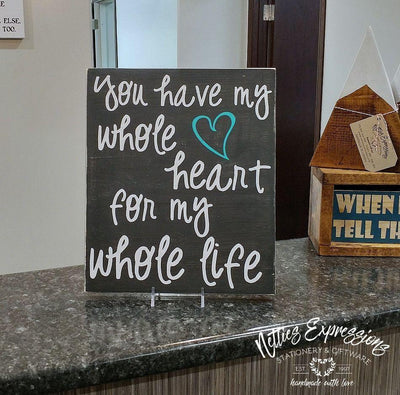 ELSE.
TOO.
you have my
whole
heart
for my
whole life
WHEN
TELL TH
Netties Expressions
STATIONERY & GIFTWARE
EST. 1997
handmade with love